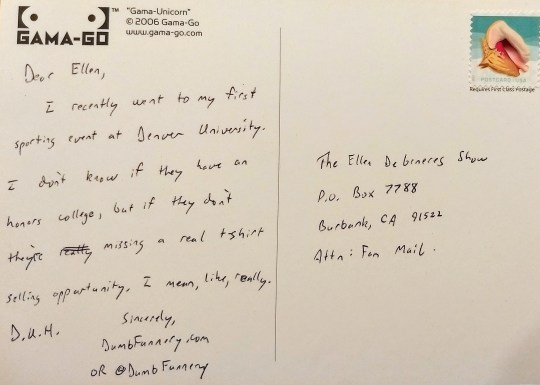 GAMA-GO™
"Gama-Unicorn"
© 2006 Gama-Go
www.gama-go.com
Dear Ellen,
I recently went to my first
sporting event at Denver University.
I don't know if they have an
honors college, but if they don't
they're really missing a real t-shirt
selling opportunity. I mean, like, really.
D.U.H.
Sincerely,
DumbFunnery.com
OR @DumbFunnery
POSTCARD USA
Requires First-Class Postage
The Ellen Degeneres Show
P.O. Box 7788
Burbank, CA 91522
Attn: Fan Mail.